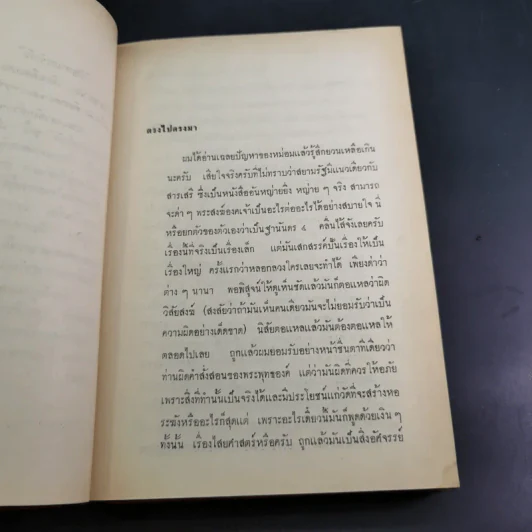 ตรงไปตรงมา
ผมได้อ่านเฉลยปัญหาของหม่อมแล้วรู้สึกยวนเหลือเกิน
นะครับ เสียใจจริงครับที่ไม่ทราบว่าสยามรัฐมีแนวเดียวกับ
สารเสรี ซึ่งเป็นหนังสืออันหญ่ายยิ่ง หญ่าย ๆ จริง สามารถ
จะด่า ๆ พระสงฆ์องค์เจ้าเป็นอะไรต่ออะไรได้อย่างสบายใจ นี่
หรือยกตัวของตัวเองว่าเป็นฐานันดร ๔ คลื่นไส้จังเลยครับ
เรื่องนี้ที่จริงเป็นเรื่องเล็ก แต่มันเสกสรรค์ปั้นเรื่องให้เป็น
เรื่องใหญ่ ครั้งแรกว่าหลอกลวงใครเลยจะทำได้ เพียงด่าว่า
ต่าง ๆ นานา พอพิสูจน์ให้ดูเห็นชัดแล้วมันก็ตอแหลว่าผิด
วินัยสงฆ์ (สงสัยว่าถ้ามันเห็นคนเดียวมันจะไม่ยอมรับว่าเป็น
ความผิดอย่างเด็ดขาด) นิสัยตอแหลแล้วมันต้องตอแหลให้
ตลอดไปเลย ถูกแล้วผมยอมรับอย่างหน้าชื่นตาทีเดียวว่า
ท่านผิดคำสั่งสอนของพระพุทธองค์ แต่ว่ามันผิดที่ควรให้อภัย
เพราะสิ่งที่ทำนั้นเป็นจริงได้และมีประโยชน์แก่วัดที่จะสร้างหอ
ระฆังหรืออะไรก็สุดแต่ เพราะอะไรเดี๋ยวนี้มันก็พูดด้วยเงิน ๆ
ทั้งนั้น เรื่องไสยศาสตร์หรือครับ ถูกแล้วมันเป็นสิ่งอัศจรรย์